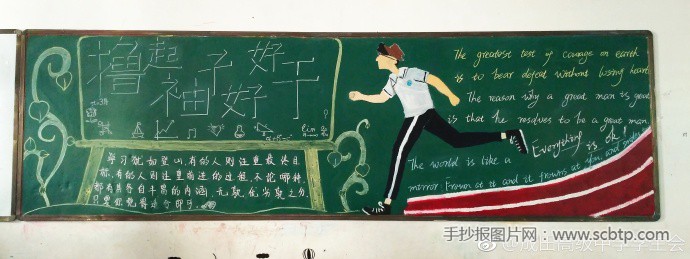 撸起
袖子好好干
学习犹如登山,有的人则注重最终目
标,有的人则注重前进的过程,不论哪种,
都有其各自丰富的内涵,无孰优孰劣之分,
只要你觉得
The greatest test of courage on earth
is to bear defeat without losing heart
The reason why a great man is great
is that he resolves to be a great man
Everything is ok!
The world is like a
mirror Frown at it and it frowns at you, and smile
手抄报图片网:www.scbtp.com